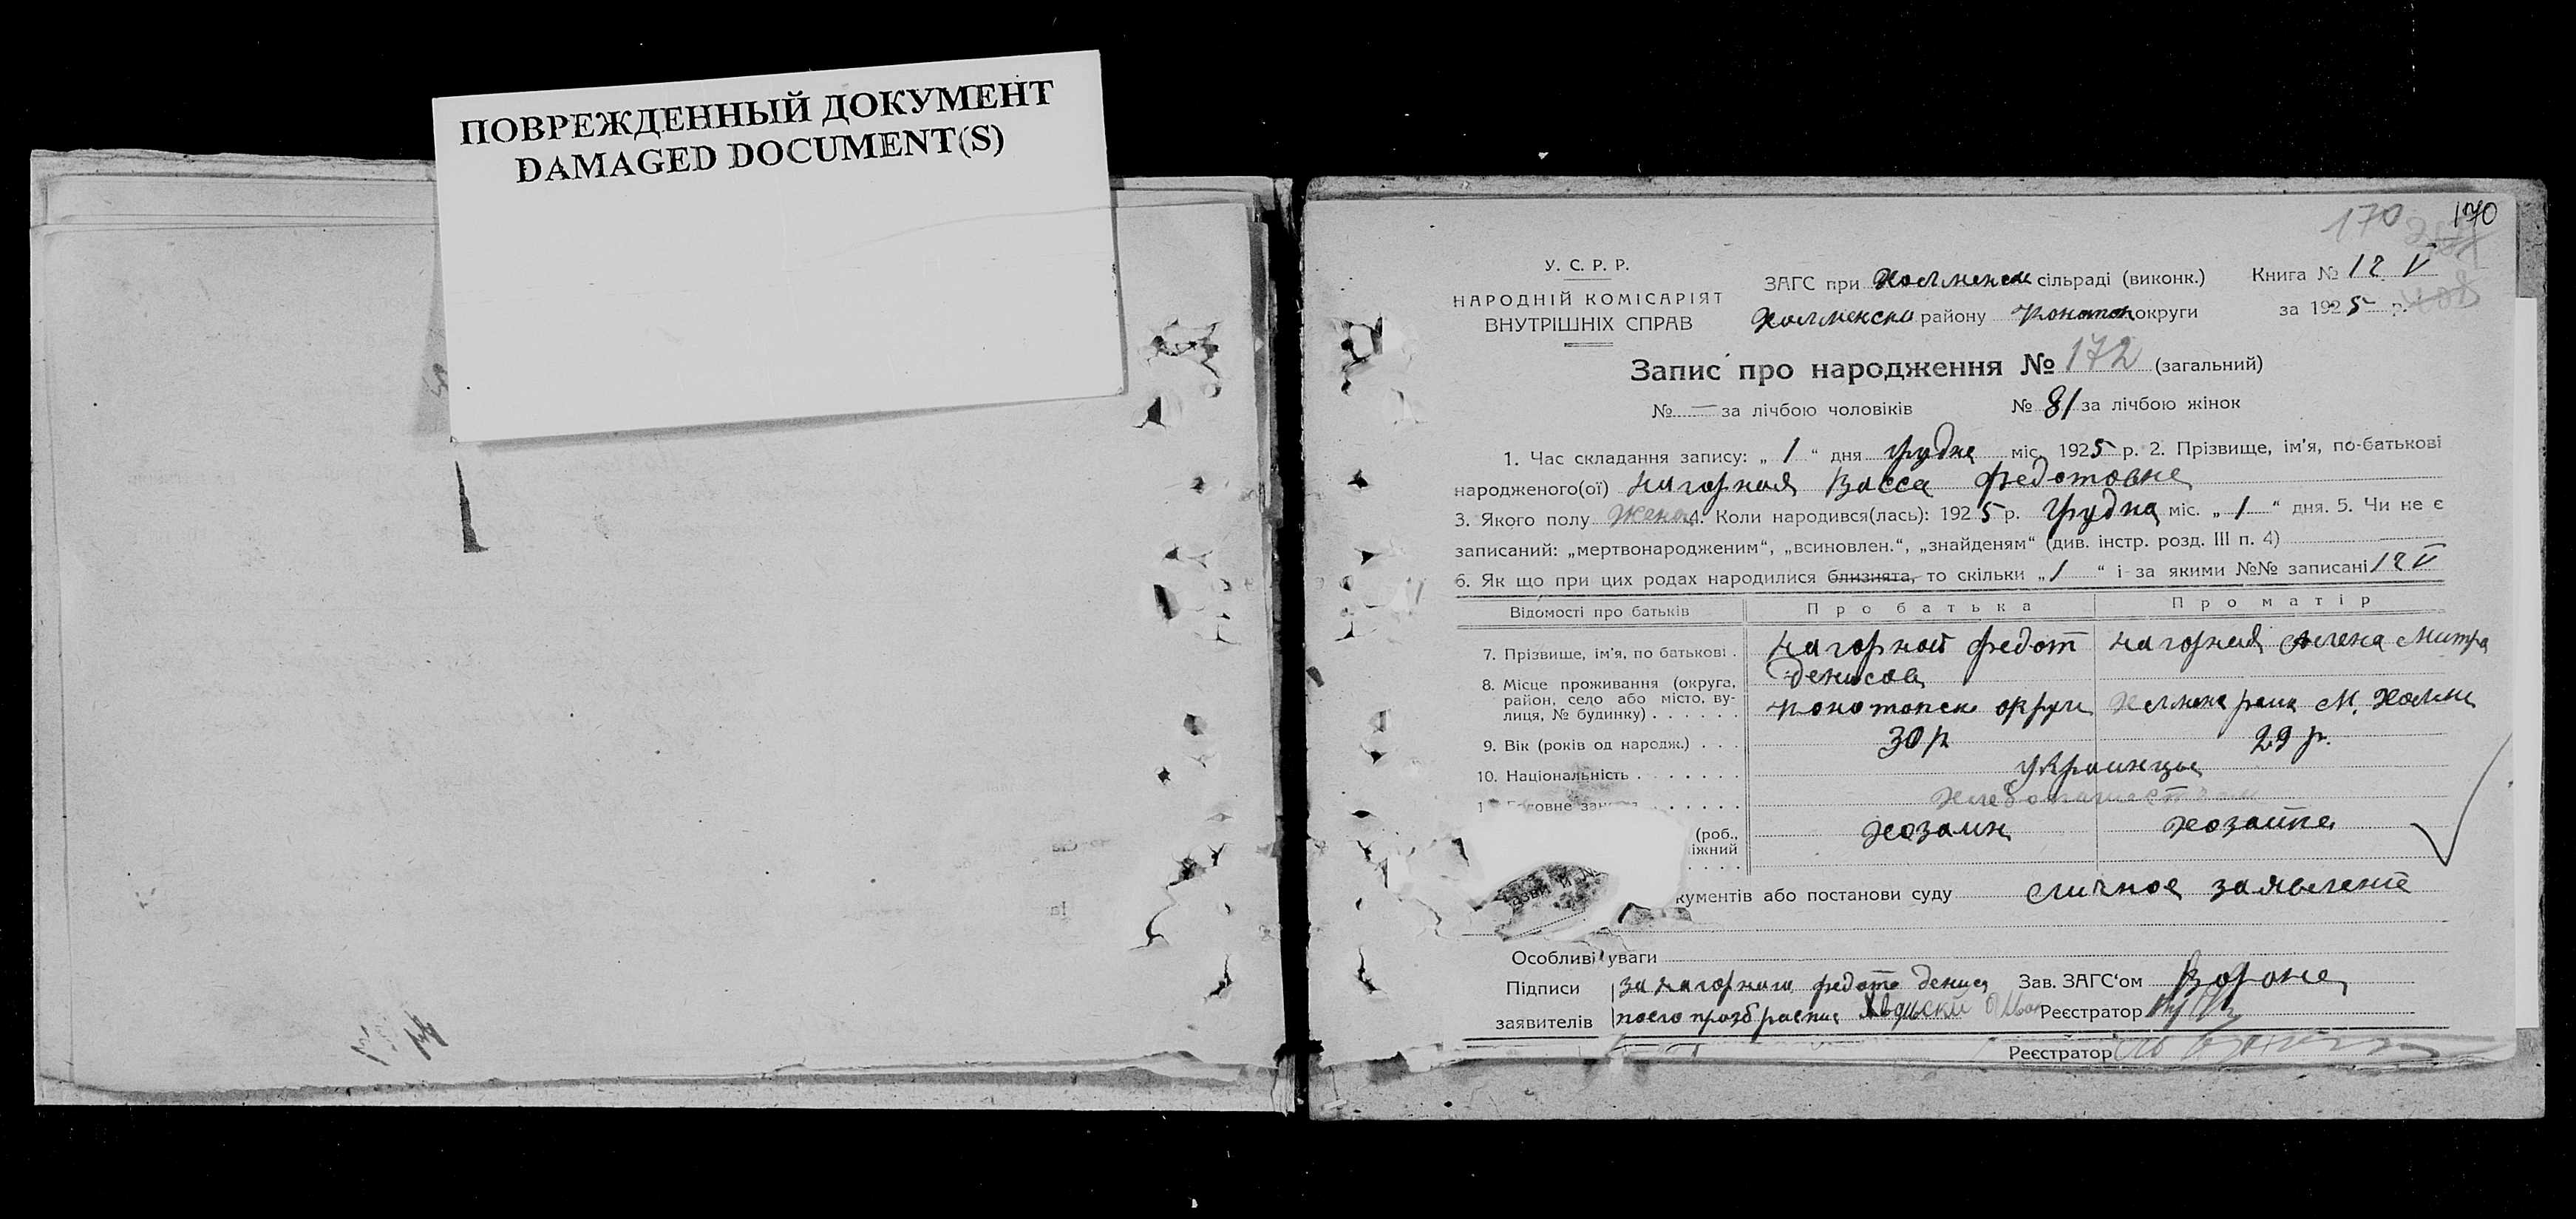 ПОВРЕЖДЕННЫЙ ДОКУМЕНТ
DAMAGED DOCUMENT(S)
170 170
У. С. Р. Р.
НАРОДНІЙ КОМІСАРІЯТ
ВНУТРІШНІХ СПРАВ
ЗАГС при Холменск сільраді (виконк.)
Холменско району Конотоп округи
Книга № 12 V
за 1925 р.
Запис про народження № 172 (загальний)
№ — за лічбою чоловіків № 81 за лічбою жінок
1. Час складання запису: „ 1 “ дня грудня міс. 1925 р. 2. Прізвище, ім'я, по-батькові
народженого(ої) Нагорная Васса Федотовна
3. Якого полу Жена 4. Коли народився(лась): 1925 р. Грудня міс. „ 1 “ дня. 5. Чи не є
записаний: „мертвонародженим“, „всиновлен.“, „знайденям“ (див. інстр. розд. III п. 4)
6. Як що при цих родах народилися близнята, то скільки „ 1 “ і за якими №№ записані 12 V
Відомості про батьків Про батька Про матір
7. Прізвище, ім'я, по батькові . Нагорной Федот Нагорная Алена Митра
Денисов
8. Місце проживання (округа,
район, село або місто, ву-
лиця, № будинку) . . . . . . Конотопск округи М. Холми
9. Вік (років од народж.) . . . 30 р 29 р.
10. Національність . . . . . . . украинцы
(роб., хозаин хозайка
іжний
кументів або постанови суду личное заявление
Особливі уваги
Підписи за Нагорного Федота Денис Зав. ЗАГС'ом Ворона
заявителів Реєстратор
Реєстратор